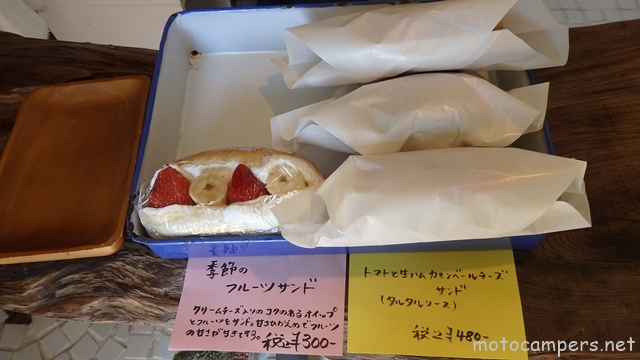 季節の
フルーツサンド
クリームチーズ入りのコクのあるホイップ
とフルーツをサンド。甘さひかえめでフルーツ
の甘さが生きてます。税込¥300-
トマトと生ハムカマンベールチーズ
サンド
(タルタルソース)
税込¥480-
motocampers.net